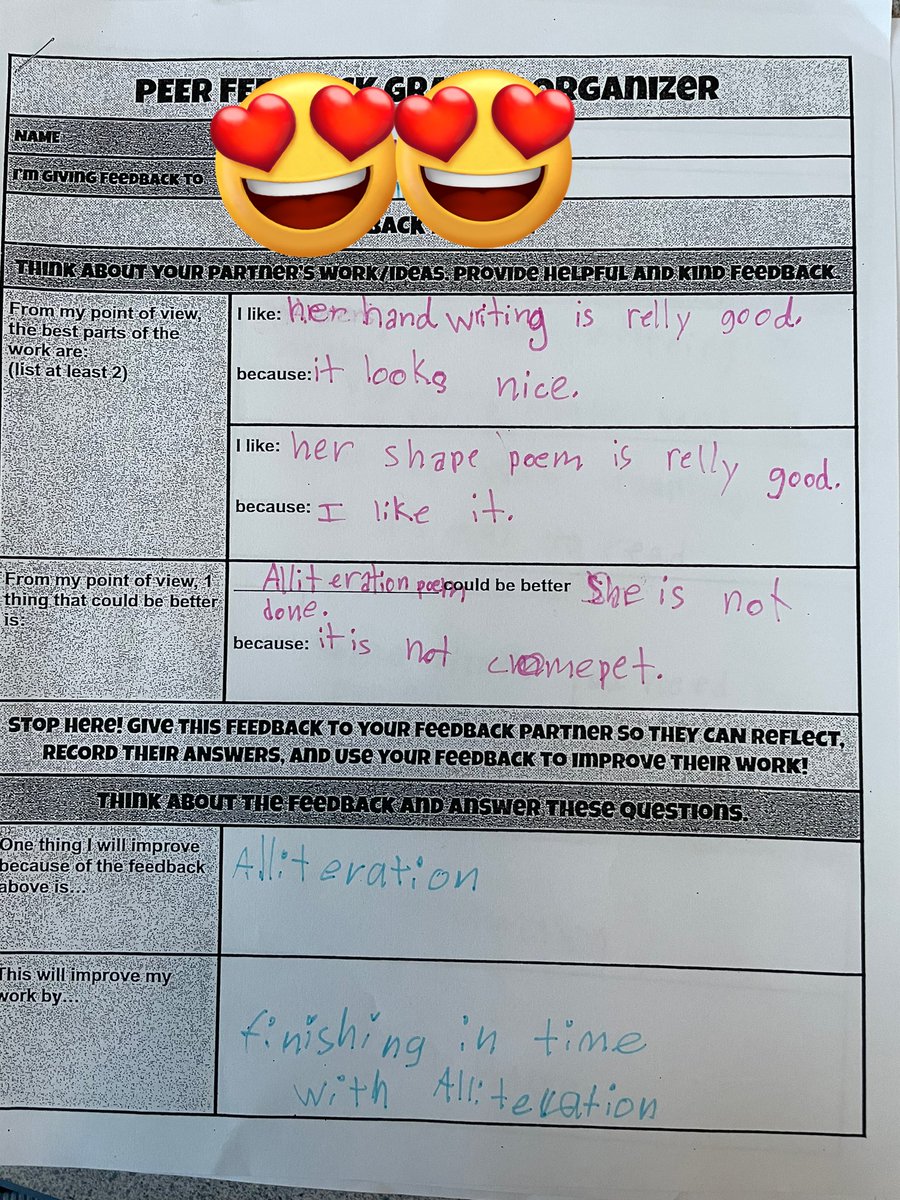 PEER GRAPHIC ORGANIZER
NAME
I'M GIVING FEEDBACK TO
THINK ABOUT YOUR PARTNER'S WORK/IDEAS. PROVIDE HELPFUL AND KIND FEEDBACK.
From my point of view,
the best parts of the
work are:
(list at least 2)
I like: her hand writing is relly good.
because: it looks nice.
I like: her shape poem is relly good.
because: I like it.
From my point of view, 1
thing that could be better
is:
Alliteration poem could be better She is not
done.
because: it is not
STOP HERE! GIVE THIS FEEDBACK TO YOUR FEEDBACK PARTNER SO THEY CAN REFLECT,
RECORD THEIR ANSWERS, AND USE YOUR FEEDBACK TO IMPROVE THEIR WORK!
THINK ABOUT THE FEEDBACK AND ANSWER THESE QUESTIONS.
One thing I will improve
because of the feedback
above is...
Alliteration
This will improve my
work by...
finishing in time
with Alliteration